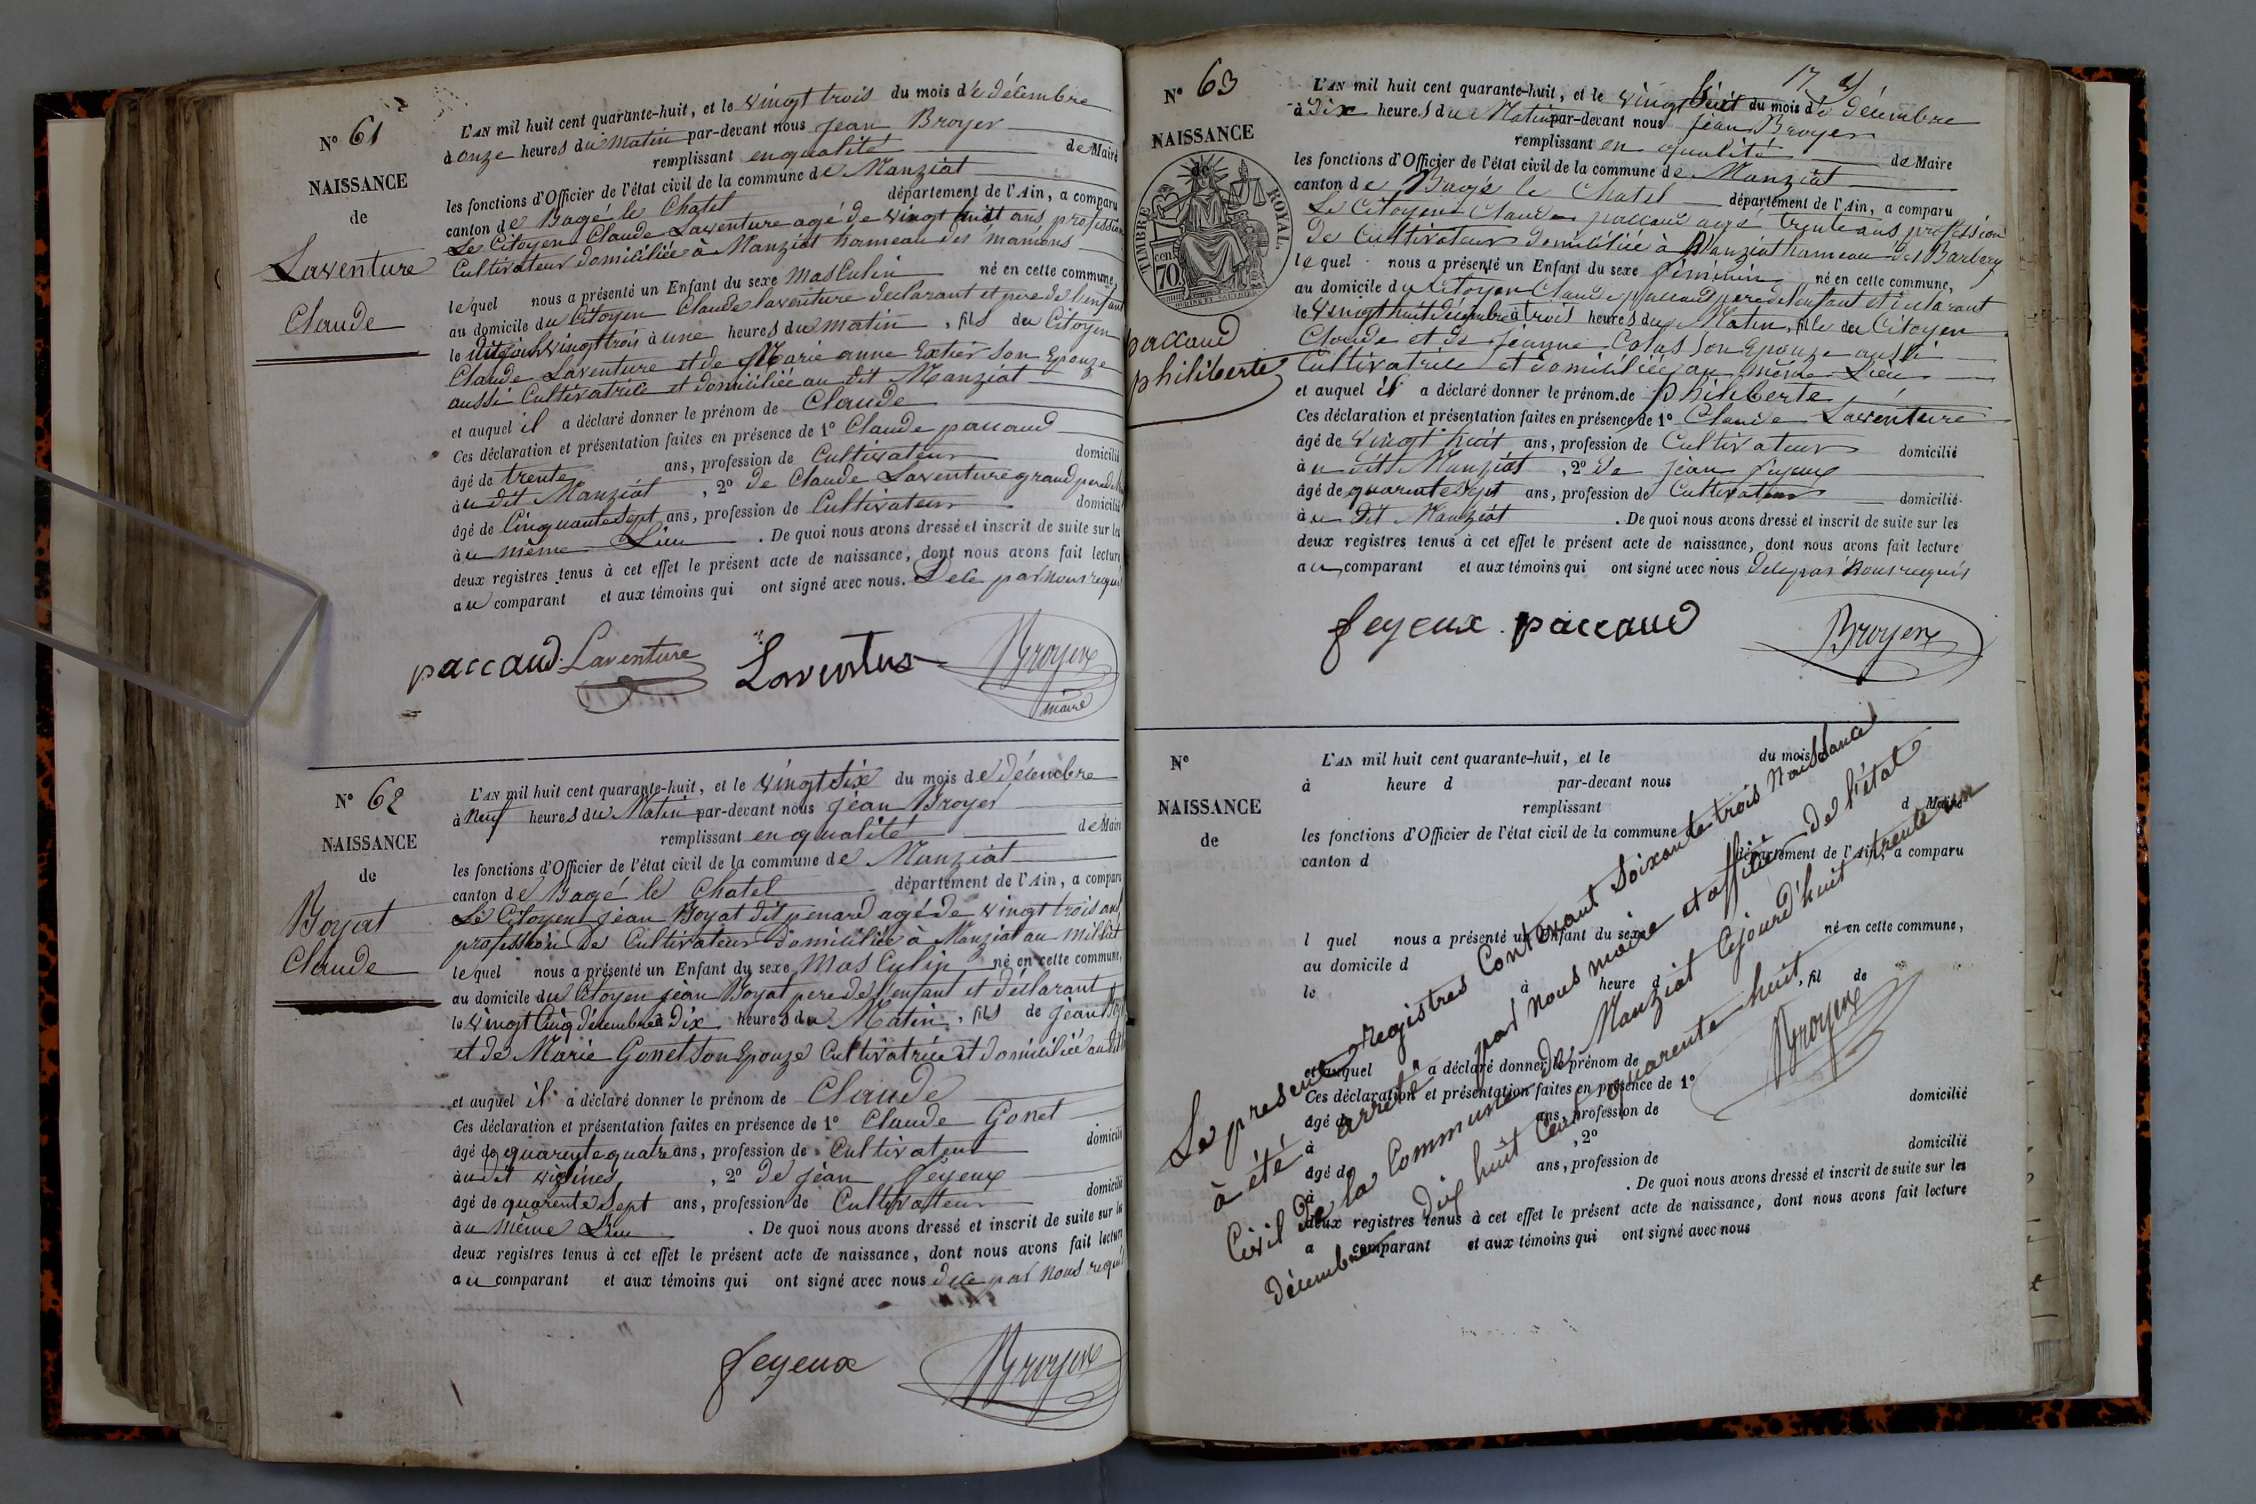 N° 61
NAISSANCE
de
Laventure
Claude
L'AN mil huit cent quarante-huit, et le vingt trois du mois de décembre
à onze heures du matin par-devant nous jean Broyer
remplissant en qualité de Maire
les fonctions d'Officier de l'état civil de la commune de Manziat
canton de Bagé le Chatel département de l'Ain, a comparu
Le Citoyen Claude Laventure agé de vingt huit ans profession
Cultivateur domiciliée à Manziat hameau des mamons
lequel nous a présenté un Enfant du sexe masculin né en cette commune,
au domicile du Citoyen Claude laventure declarant et pere de l'enfant
le dit jour vingt trois à une heures du matin, fils du Citoyen
Claude Laventure et de Marie anne Extier son Epouze
aussi Cultivatrice et domiciliée au dit Manziat
et auquel il a déclaré donner le prénom de Claude
Ces déclaration et présentation faites en présence de 1° Claude paccaud
âgé de trente ans, profession de Cultivateur domicilié
à u dit Manziat, 2° de Claude Laventure grand pere
âgé de Cinquante Sept ans, profession de Cultivateur domicilié
à u même Lieu. De quoi nous avons dressé et inscrit de suite sur les
deux registres tenus à cet effet le présent acte de naissance, dont nous avons fait lecture
au comparant et aux témoins qui ont signé avec nous. De ce par nous requis
paccaud Laventure Laventur Broyer
maire
N° 62
NAISSANCE
de
Boyat
Claude
L'AN mil huit cent quarante-huit, et le vingt Six du mois de décembre
à neuf heures du Matin par-devant nous jean Broyer
remplissant en qualité de Maire
les fonctions d'Officier de l'état civil de la commune de Manziat
canton de Bagé le Chatel département de l'Ain, a comparu
Le Citoyen jean Boyat dit penard agé de vingt trois ans
profession de Cultivateur domiciliée à Manziat au
lequel nous a présenté un Enfant du sexe Masculin né en cette commune,
au domicile du Citoyen jean Boyat pere de l'enfant et déclarant
le vingt Cinq décembre à dix heures du Matin, fils de jean
et de Marie Gonet son Epouze Cultivatrice et domiciliée au
et auquel il a déclaré donner le prénom de Claude
Ces déclaration et présentation faites en présence de 1° Claude Gonet
âgé de quarente quatre ans, profession de Cultivateur domicilié
à u dit vizines, 2° de jean feyeux
âgé de quarente Sept ans, profession de Cultivateur domicilié
à u même Lieu. De quoi nous avons dressé et inscrit de suite sur les
deux registres tenus à cet effet le présent acte de naissance, dont nous avons fait lecture
au comparant et aux témoins qui ont signé avec nous de ce par nous requis
feyeux Broyer
17
N° 63
NAISSANCE
de
TIMBRE ROYAL.
70 cen.
paccaud
philiberte
L'AN mil huit cent quarante-huit, et le vingt huit du mois de décembre
à Dix heures du Matin par-devant nous jean Broyer
remplissant en qualité de Maire
les fonctions d'Officier de l'état civil de la commune de Manziat
canton de Bagé le Chatel département de l'Ain, a comparu
Le Citoyen Claude paccaud agé trente ans profession
de Cultivateur domiciliée à Manziat hameau des Barbery
lequel nous a présenté un Enfant du sexe féminin né en cette commune,
au domicile du Citoyen Claude paccaud pere de l'enfant et déclarant
le vingt huit décembre à trois heures du Matin, fille du Citoyen
Claude et de jeanne Colas son Epouze aussi
Cultivatrice et domiciliée au même Lieu
et auquel il a déclaré donner le prénom de philiberte
Ces déclaration et présentation faites en présence de 1° Claude Laventure
âgé de vingt huit ans, profession de Cultivateur domicilié
à u dit Manziat, 2° de jean feyeux
âgé de quarente Sept ans, profession de Cultivateur domicilié
à u dit Manziat. De quoi nous avons dressé et inscrit de suite sur les
deux registres tenus à cet effet le présent acte de naissance, dont nous avons fait lecture
au comparant et aux témoins qui ont signé avec nous de ce par nous requis
feyeux paccaud Broyer
N°
NAISSANCE
de
L'AN mil huit cent quarante-huit, et le du mois d
à heure d par-devant nous
remplissant d Maire
les fonctions d'Officier de l'état civil de la commune d
canton d département de l'Ain, a comparu
l quel nous a présenté un Enfant du sexe né en cette commune,
au domicile d
le à heure d , fil de
et auquel a déclaré donner le prénom de
Ces déclaration et présentation faites en présence de 1°
âgé de ans, profession de domicilié
à , 2°
âgé de ans, profession de domicilié
à . De quoi nous avons dressé et inscrit de suite sur les
deux registres tenus à cet effet le présent acte de naissance, dont nous avons fait lecture
a comparant et aux témoins qui ont signé avec nous
Le present Registres Contenant Soixante trois Naissance
à été arreté par nous maire et officier de l'état
Civil de la Commune de Manziat Cejourd'huit trente un
décembre dix huit Cent quarente huit
Broyer